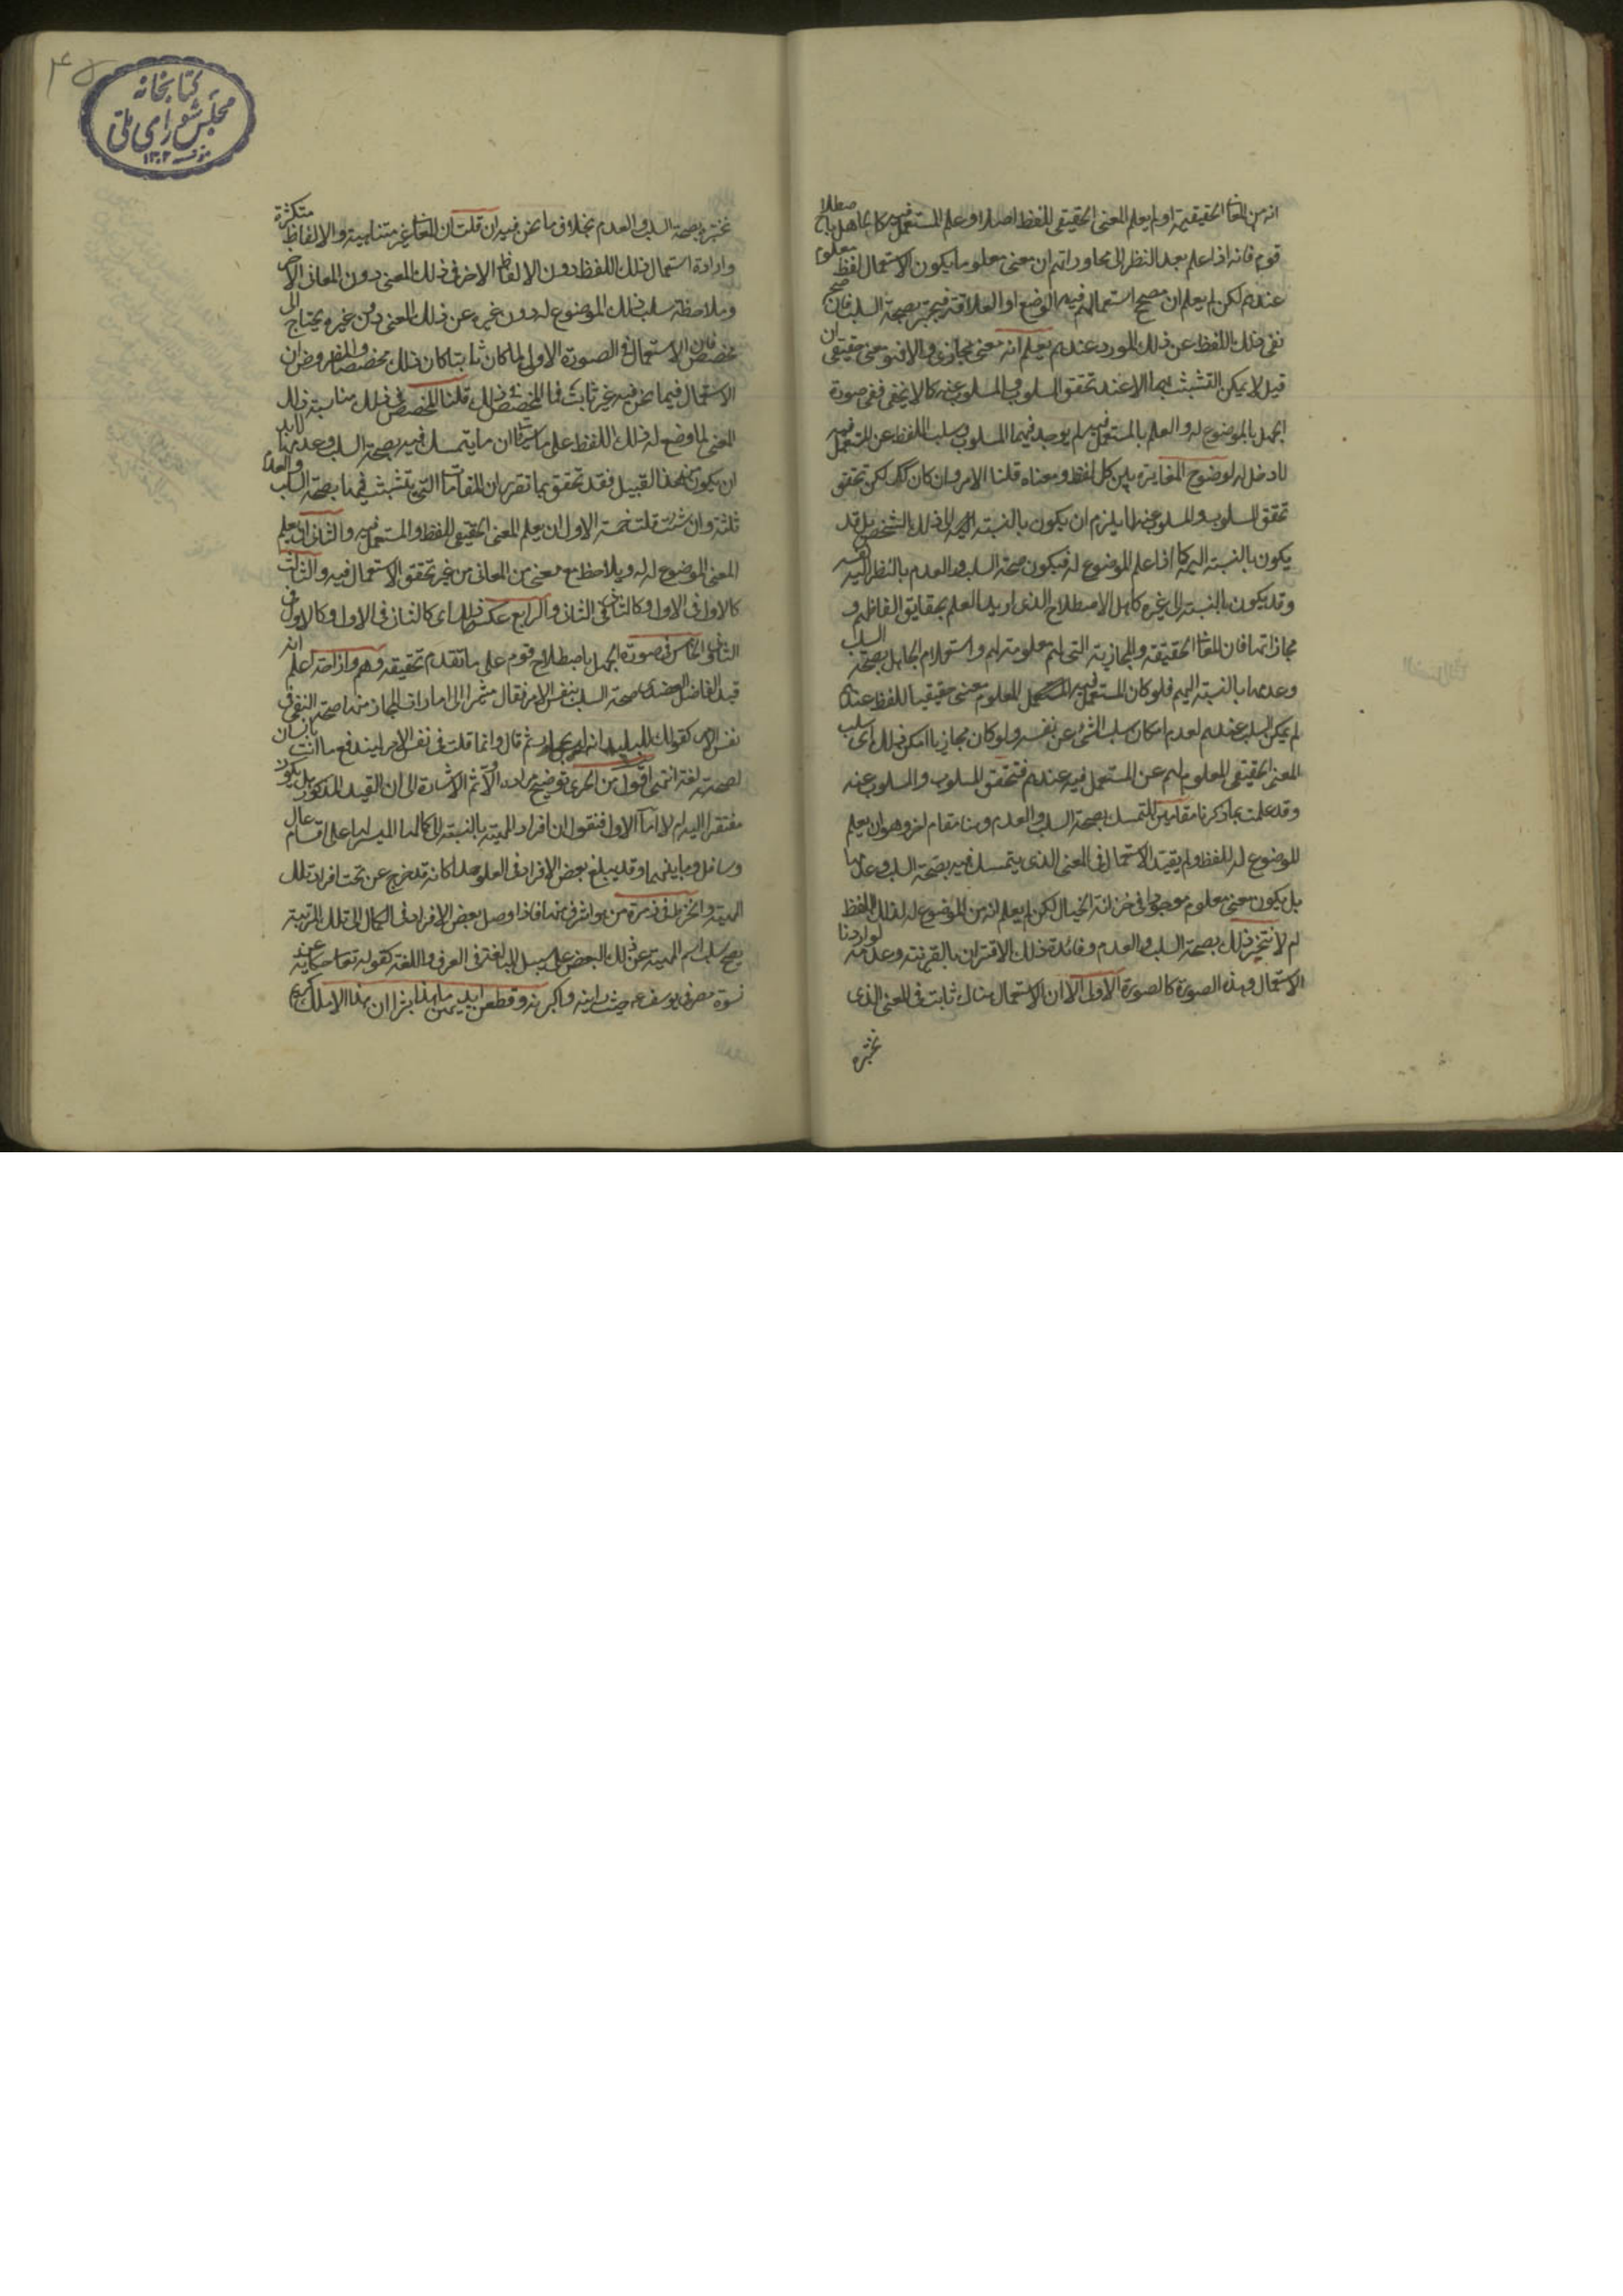 انه من المعاني الحقيقية او لم يعلم المعنى الحقيقي للفظ اصلا وعلم المستعمل فيه كالجاهل باصطلاح
قوم فانه اذا علم بعد النظر الى محاوراتهم ان معنى معلوما يكون الاستعمال لفظ معلوم
عندهم لكن لم يعلم ان مصحح استعمالهم فيه الوضع او العلاقة فيختبر بصحة السلب فان صح
نفى ذلك اللفظ عن ذلك المورد عندهم يعلم انه معنى مجازي والا فهو معنى حقيقي ان
قيل لا يمكن التشبث بهما الا عند تحقق المسلوب والمسلوب عنه كما لا يخفى ففي صورة
الجهل بالموضوع له والعلم بالمستعمل فيه لم يوجد فيهما المسلوب وسلب اللفظ عن المستعمل فيه
لا دخل له لوضوح المغايرة بين كل لفظ ومعناه قلنا الامر وان كان كك لكن تحقق
تحقق المسلوب والمسلوب عنه لا يلزم ان يكون بالنسبة الى ذلك الشخص بل قد
يكون بالنسبة اليه كما اذا علم الموضوع له فيكون صحة السلب والعدم بالنظر اليه
وقد يكون بالنسبة الى غيره كاهل الاصطلاح الذي اريد العلم بحقايق الفاظهم و
مجازاتها فان المعاني الحقيقية والمجازية التي لهم معلومة لهم واستعلام الجاهل بصحة السلب
وعدمها بالنسبة اليهم فلو كان المستعمل فيه المعلوم معنى حقيقيا للفظ عندهم
لم يمكن السلب عندهم لعدم امكان سلب الشئ عن نفسه ولو كان مجازيا امكن ذلك اى سلب
المعنى الحقيقي المعلوم لهم عن المستعمل فيه عندهم فتحقق المسلوب والمسلوب عنه
وقد علمت بما ذكرنا مقامين للتمسك بصحة السلب والعدم وهنا مقام اخر وهو ان يعلم
الموضوع له للفظ ولم يقيد الاستعمال في المعنى الذي يتمسك فيه بصحة السلب وعدمها
بل يكون معنى معلوم موجودا في خزانة الخيال لكن لم يعلم انه من الموضوع له لذلك اللفظ
ام لا فتختبر ذلك بصحة السلب والعدم وفائدة ذلك الاقتران بالقرينة وعدمه لو اردنا
الاستعمال وهذه الصورة كالصورة الاولى الا ان الاستعمال هناك ثابت في المعنى الذي
نختبره
۴۵
كتابخانه
مجلس شوراى ملى
مؤسسه ۱۳۰۲
نختبره بصحة السلب والعدم بخلاف ما نحن فيه ان قلت ان المعاني غير متناهية والالفاظ متكثرة
وارادة استعمال ذلك اللفظ دون الالفاظ الاخر في ذلك المعنى دون المعاني الاخر
وملاحظة سلب ذلك الموضوع له دون غيره عن ذلك المعنى دون غيره يحتاج الى
مخصص فان الاستعمال في الصورة الاولى لما كان ثابتا كان ذلك مخصصا والمفروض ان
الاستعمال فيما نحن فيه غير ثابت فما المخصص في ذلك قلنا المخصص في ذلك مناسبة ذلك
المعنى لما وضع له ذلك اللفظ على ما سيأتي ان ما يتمسك فيه بصحة السلب وعدمها لابد
ان يكون من هذا القبيل فقد تحقق بما تقرر ان المقامات التي يتشبث فيها بصحة السلب والعدم
ثلثة وان شئت قلت خمسة الاول ان يعلم المعنى الحقيقي للفظ والمستعمل فيه والثاني ان يعلم
المعنى الموضوع له له ويلاحظ مع معنى من المعاني من غير تحقق الاستعمال فيه والثالث
كالاول في الاول وكالثاني في الثاني والرابع عكس ذلك اى كالثاني في الاول وكالاول في
الثاني والخامس في صورة الجهل باصطلاح قوم على ما تقدم تحقيقه وهم وازاحة اعلم انه
قيد الفاضل العضدي صحة السلب بنفس الامر فقال مشيرا الى امارات المجاز منها صحة النفي في
نفس الامر كقولك للبليد انه ليس بحمار ثم قال وانما قلت في نفس الامر ليندفع ما انت بانسان
لصحته لغة انتهى اقول من الحري توضيح مراده اولا ثم الاشارة الى ان القيد المذكور هل يكون
مفتقرا اليه ام لا اما الاول فنقول ان افراد المهية بالنسبة الى كمالها الميسر لها على اقسام عال
وسافل وما بينهما وقد يبلغ بعض الافراد في العلو حدا كانه قد خرج عن تحت افراد تلك
المهية وانخرط في زمرة من هو اشرف منها فاذا وصل بعض الافراد في الكمال الى تلك المرتبة
يصح سلب اسم المهية عن ذلك البعض على سبيل المبالغة في العرف واللغة كقوله تعالى حكاية عن
نسوة مصر في يوسف ع حيث راينه واكبرنه وقطعن ايديهن ما هذا بشرا ان هذا الا ملك كريم